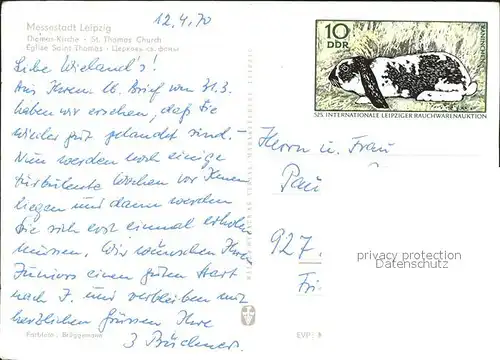 12.4.70
Messestadt Leipzig
Thomas-Kirche - St. Thomas Church
Eglise Saint Thomas - Церковь св. Фомы
Liebe Wieland's!
Aus Ihrem lb. Brief vom 31.3.
haben wir ersehen, daß Sie
wieder gut gelandet sind. -
Nun werden noch einige
turbulente Wochen vor Ihnen
liegen und dann werden
Sie sich erst einmal erholen
müssen. Wir wünschen Ihren
Juniors einen guten Start
nach J. und verbleiben mit
herzlichen Grüssen Ihre
3 Büchners
Farbfoto: Brüggemann
10
DDR
KANINCHEN
525. INTERNATIONALE LEIPZIGER RAUCHWARENAUKTION
Herrn u. Frau
Pau
927.
privacy protection
Datenschutz
Fri
EVP